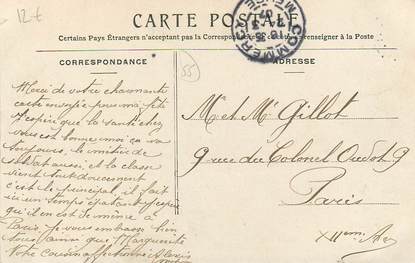 12 t
CARTE POSTALE
Certains Pays Étrangers n'acceptant pas la Correspondance au renseigner à la Poste
COMMERCY
CORRESPONDANCE
ADRESSE
55
Merci de votre charmante
carte envoyée pour ma fête
J'espère que la santé chez
vous est bonne moi ça va
toujours, le métier de
soldat aussi, et la classe
vient tout doucement
c'est le principal, il fait
ici un temps épatant j'espère
qu'il en est de même à
Paris, je vous embrasse bien
tous ainsi que Marguerite
Votre cousin affectionné Alexis
M. et Mme Gillot
9 rue du Colonel Oudot 9
Paris
XIIem. Arr